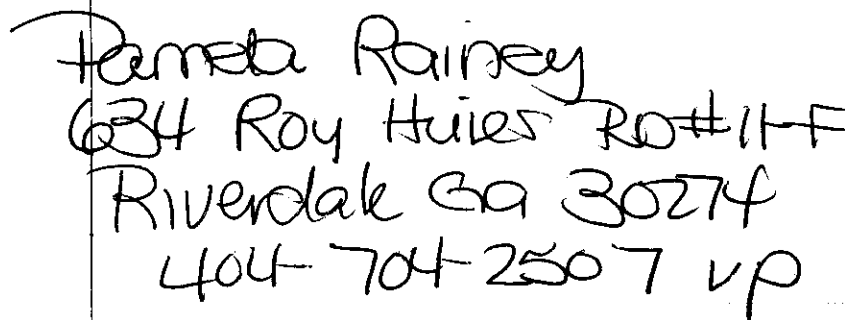 Pamela Rainey
634 Roy Huies RD #11-F
Riverdale Ga 30274
404-704-2507 vp